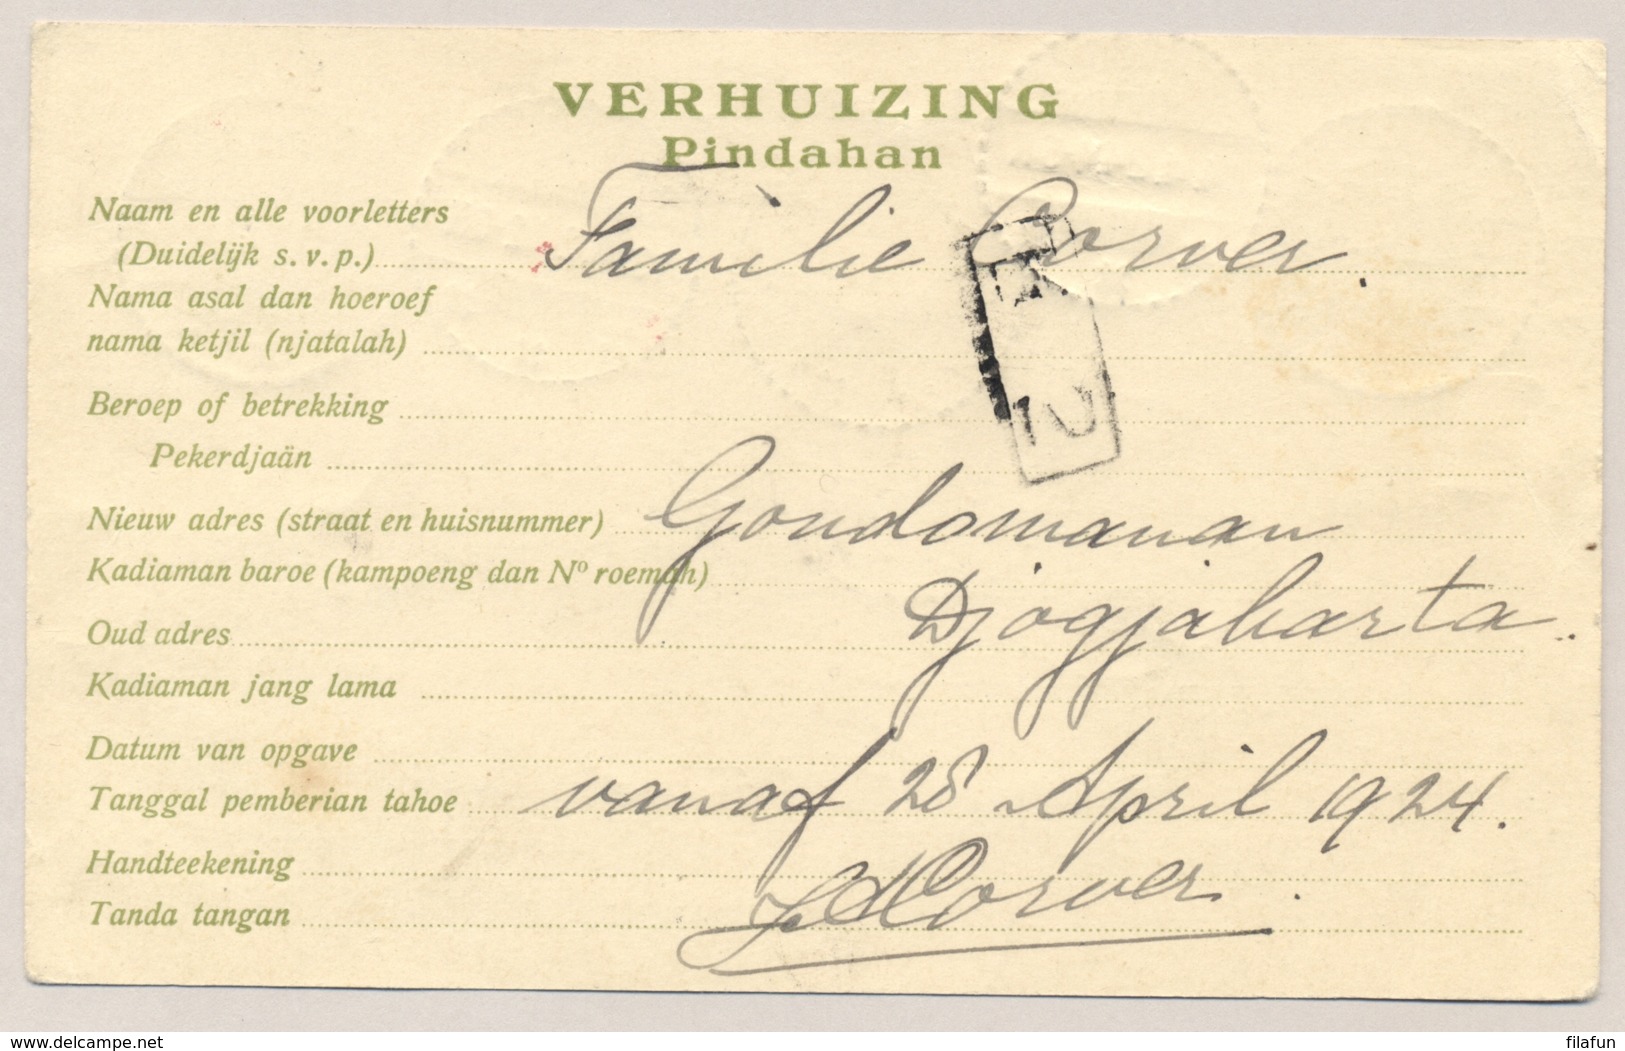 VERHUIZING
Pindahan
Naam en alle voorletters
(Duidelijk s.v.p.) Familie Corver.
Nama asal dan hoeroef
nama ketjil (njatalah)
Beroep of betrekking
Pekerdjaän
Nieuw adres (straat en huisnummer) Gondomanan
Kadiaman baroe (kampoeng dan No roemah)
Djogjakarta.
Oud adres
Kadiaman jang lama
Datum van opgave
Tanggal pemberian tahoe vanaf 28 April 1924.
Handteekening
Tanda tangan Corver.
10
www.delcampe.net
filafun